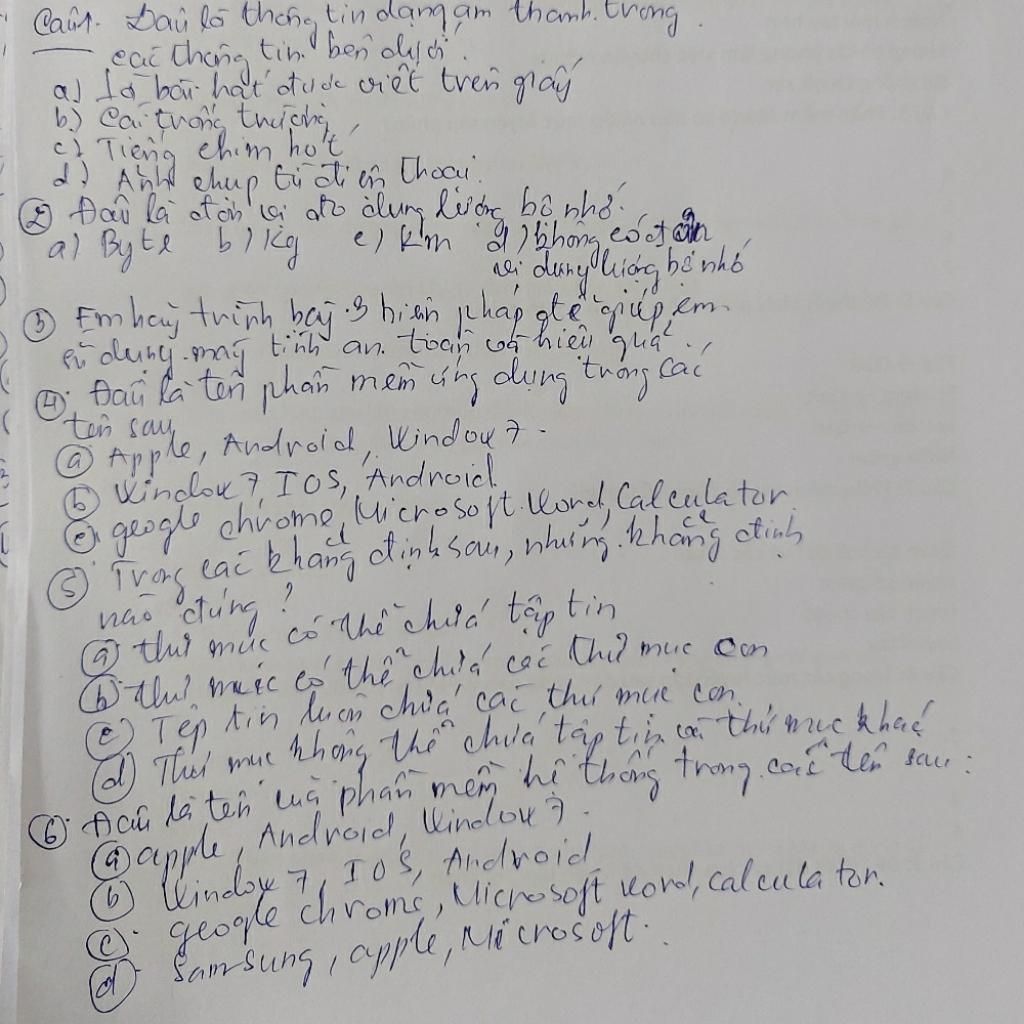 Câu 1. Đâu là thông tin dạng âm thanh. trong
các thông tin bên dưới.
a) Lời bài hát được viết trên giấy
b) Cái trống trường
c) Tiếng chim hót
d) Ảnh chụp từ điện thoại.
② Đâu là đơn vị đo dung lượng bộ nhớ.
a) Byte b) Kg c) Km d) không có đơn
vị dung lượng bộ nhớ
③ Em hãy trình bày 3 biện pháp để giúp em
sử dụng máy tính an toàn và hiệu quả.
④ Đâu là tên phần mềm ứng dụng trong các
tên sau
ⓐ Apple, Android, Window 7.
ⓑ Window 7, IOS, Android
ⓒ geogle chrome, Microsoft Word, Calculator
⑤ Trong các khẳng định sau, những khẳng định
nào đúng?
ⓐ thư mục có thể chứa tập tin
ⓑ thư mục có thể chứa các thư mục con
ⓒ Tệp tin luôn chứa các thư mục con.
ⓓ Thư mục không thể chứa tập tin và thư mục khác
⑥ Đâu là tên của phần mềm hệ thống trong các tên sau:
ⓐ apple, Android, Window 7.
ⓑ Window 7, IOS, Android
ⓒ geogle chrome, Microsoft word, calculator.
ⓓ Samsung, apple, Microsoft.